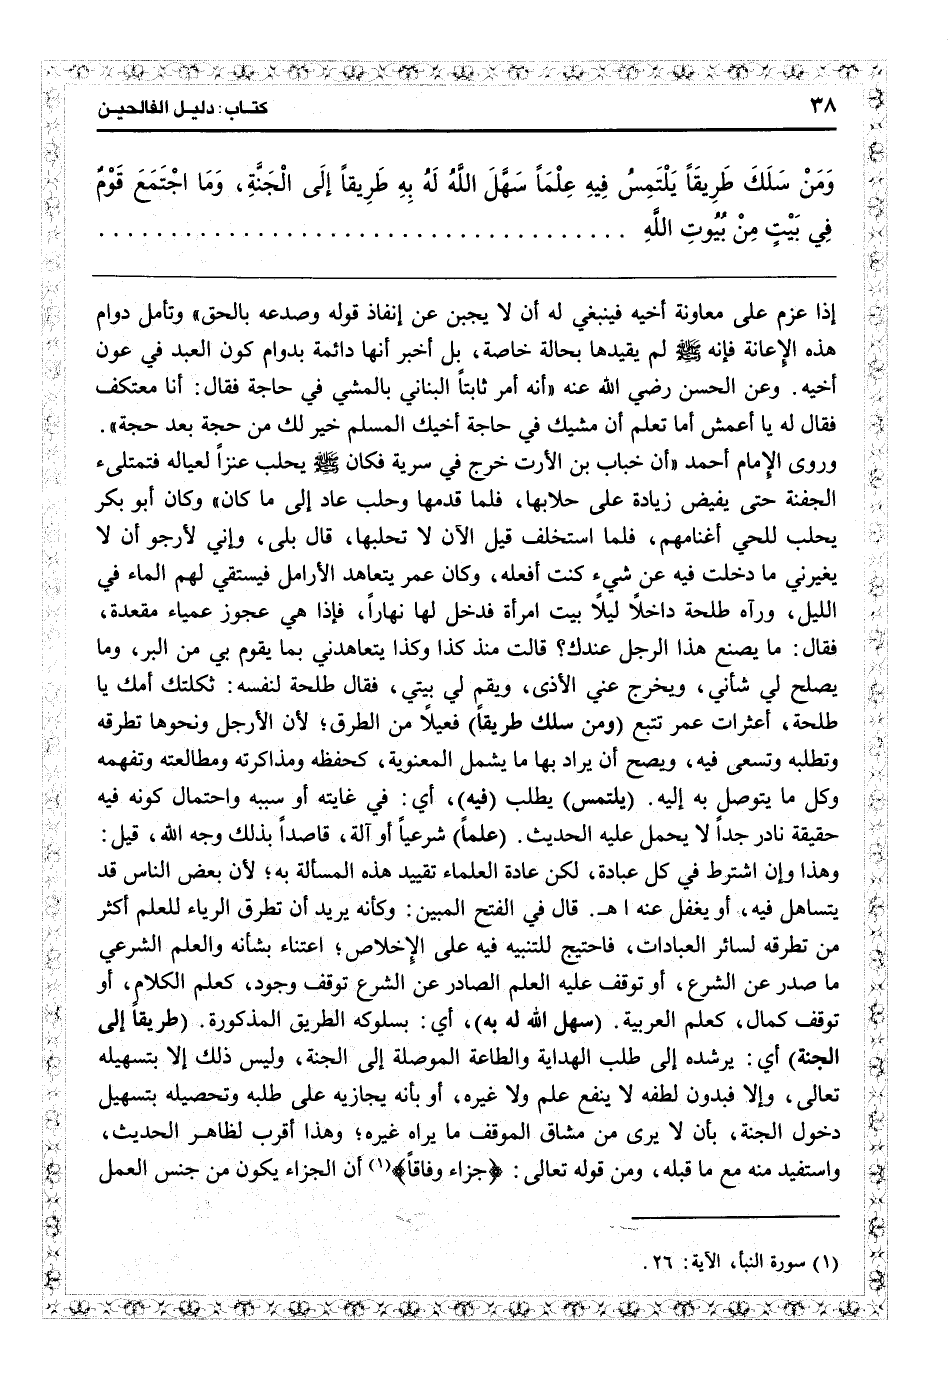 ٣٨
كتاب: دليل الفالحين
وَمَنْ سَلَكَ طَرِيقَاً يَلْتَمِسُ فِيهِ عِلْمَاً سَهَّلَ اللَّهُ لَهُ بِهِ طَرِيقاً إلَى الْجَنَّةِ، وَمَا اجْتَمَعَ قَوْمٌ
فِي بَيْتٍ مِنْ بُيُوتِ اللَّهِ . . . . . . . . . . . . . . . . . . . . . . . . . . . . . . . . . . . . .
إذا عزم على معاونة أخيه فينبغي له أن لا يجبن عن إنفاذ قوله وصدعه بالحق» وتأمل دوام
هذه الإعانة فإنه ﷺ لم يقيدها بحالة خاصة، بل أخبر أنها دائمة بدوام كون العبد في عون
أخيه. وعن الحسن رضي الله عنه «أنه أمر ثابتاً البناني بالمشي في حاجة فقال: أنا معتكف
فقال له يا أعمش أما تعلم أن مشيك في حاجة أخيك المسلم خير لك من حجة بعد حجة».
وروى الإمام أحمد «أن خباب بن الأرت خرج في سرية فكان ﷺ يحلب عنزاً لعياله فتمتلىء
الجفنة حتى يفيض زيادة على حلابها، فلما قدمها وحلب عاد إلى ما كان» وكان أبو بكر
يحلب للحي أغنامهم، فلما استخلف قيل الآن لا تحلبها، قال بلى، وإني لأرجو أن لا
يغيرني ما دخلت فيه عن شيء كنت أفعله، وكان عمر يتعاهد الأرامل فيستقي لهم الماء في
الليل، ورآه طلحة داخلاً ليلاً بيت امرأة فدخل لها نهاراً، فإذا هي عجوز عمياء مقعدة،
فقال: ما يصنع هذا الرجل عندك؟ قالت منذ كذا وكذا يتعاهدني بما يقوم بي من البر، وما
يصلح لي شأني، ويخرج عني الأذى، ويقم لي بيتي، فقال طلحة لنفسه: ثكلتك أمك يا
طلحة، أعثرات عمر تتبع (ومن سلك طريقاً) فعيلاً من الطرق؛ لأن الأرجل ونحوها تطرقه
وتطلبه وتسعى فيه، ويصح أن يراد بها ما يشمل المعنوية، كحفظه ومذاكرته ومطالعته وتفهمه
وكل ما يتوصل به إليه. (يلتمس) يطلب (فيه)، أي: في غايته أو سببه واحتمال كونه فيه
حقيقة نادر جداً لا يحمل عليه الحديث. (علماً) شرعياً أو آلة، قاصداً بذلك وجه الله، قيل:
وهذا وإن اشترط في كل عبادة، لكن عادة العلماء تقييد هذه المسألة به؛ لأن بعض الناس قد
يتساهل فيه، أو يغفل عنه ا هـ. قال في الفتح المبين: وكأنه يريد أن تطرق الرياء للعلم أكثر
من تطرقه لسائر العبادات، فاحتيج للتنبيه فيه على الإخلاص؛ اعتناء بشأنه والعلم الشرعي
ما صدر عن الشرع، أو توقف عليه العلم الصادر عن الشرع توقف وجود، كعلم الكلام، أو
توقف كمال، كعلم العربية. (سهل الله له به)، أي: بسلوكه الطريق المذكورة. (طريقاً إلى
الجنة) أي: يرشده إلى طلب الهداية والطاعة الموصلة إلى الجنة، وليس ذلك إلا بتسهيله
تعالى، وإلا فبدون لطفه لا ينفع علم ولا غيره، أو بأنه يجازيه على طلبه وتحصيله بتسهيل
دخول الجنة، بأن لا يرى من مشاق الموقف ما يراه غيره؛ وهذا أقرب لظاهر الحديث،
واستفيد منه مع ما قبله، ومن قوله تعالى: ﴿جزاء وفاقاً﴾(١) أن الجزاء يكون من جنس العمل
(١) سورة النبأ، الآية: ٢٦.